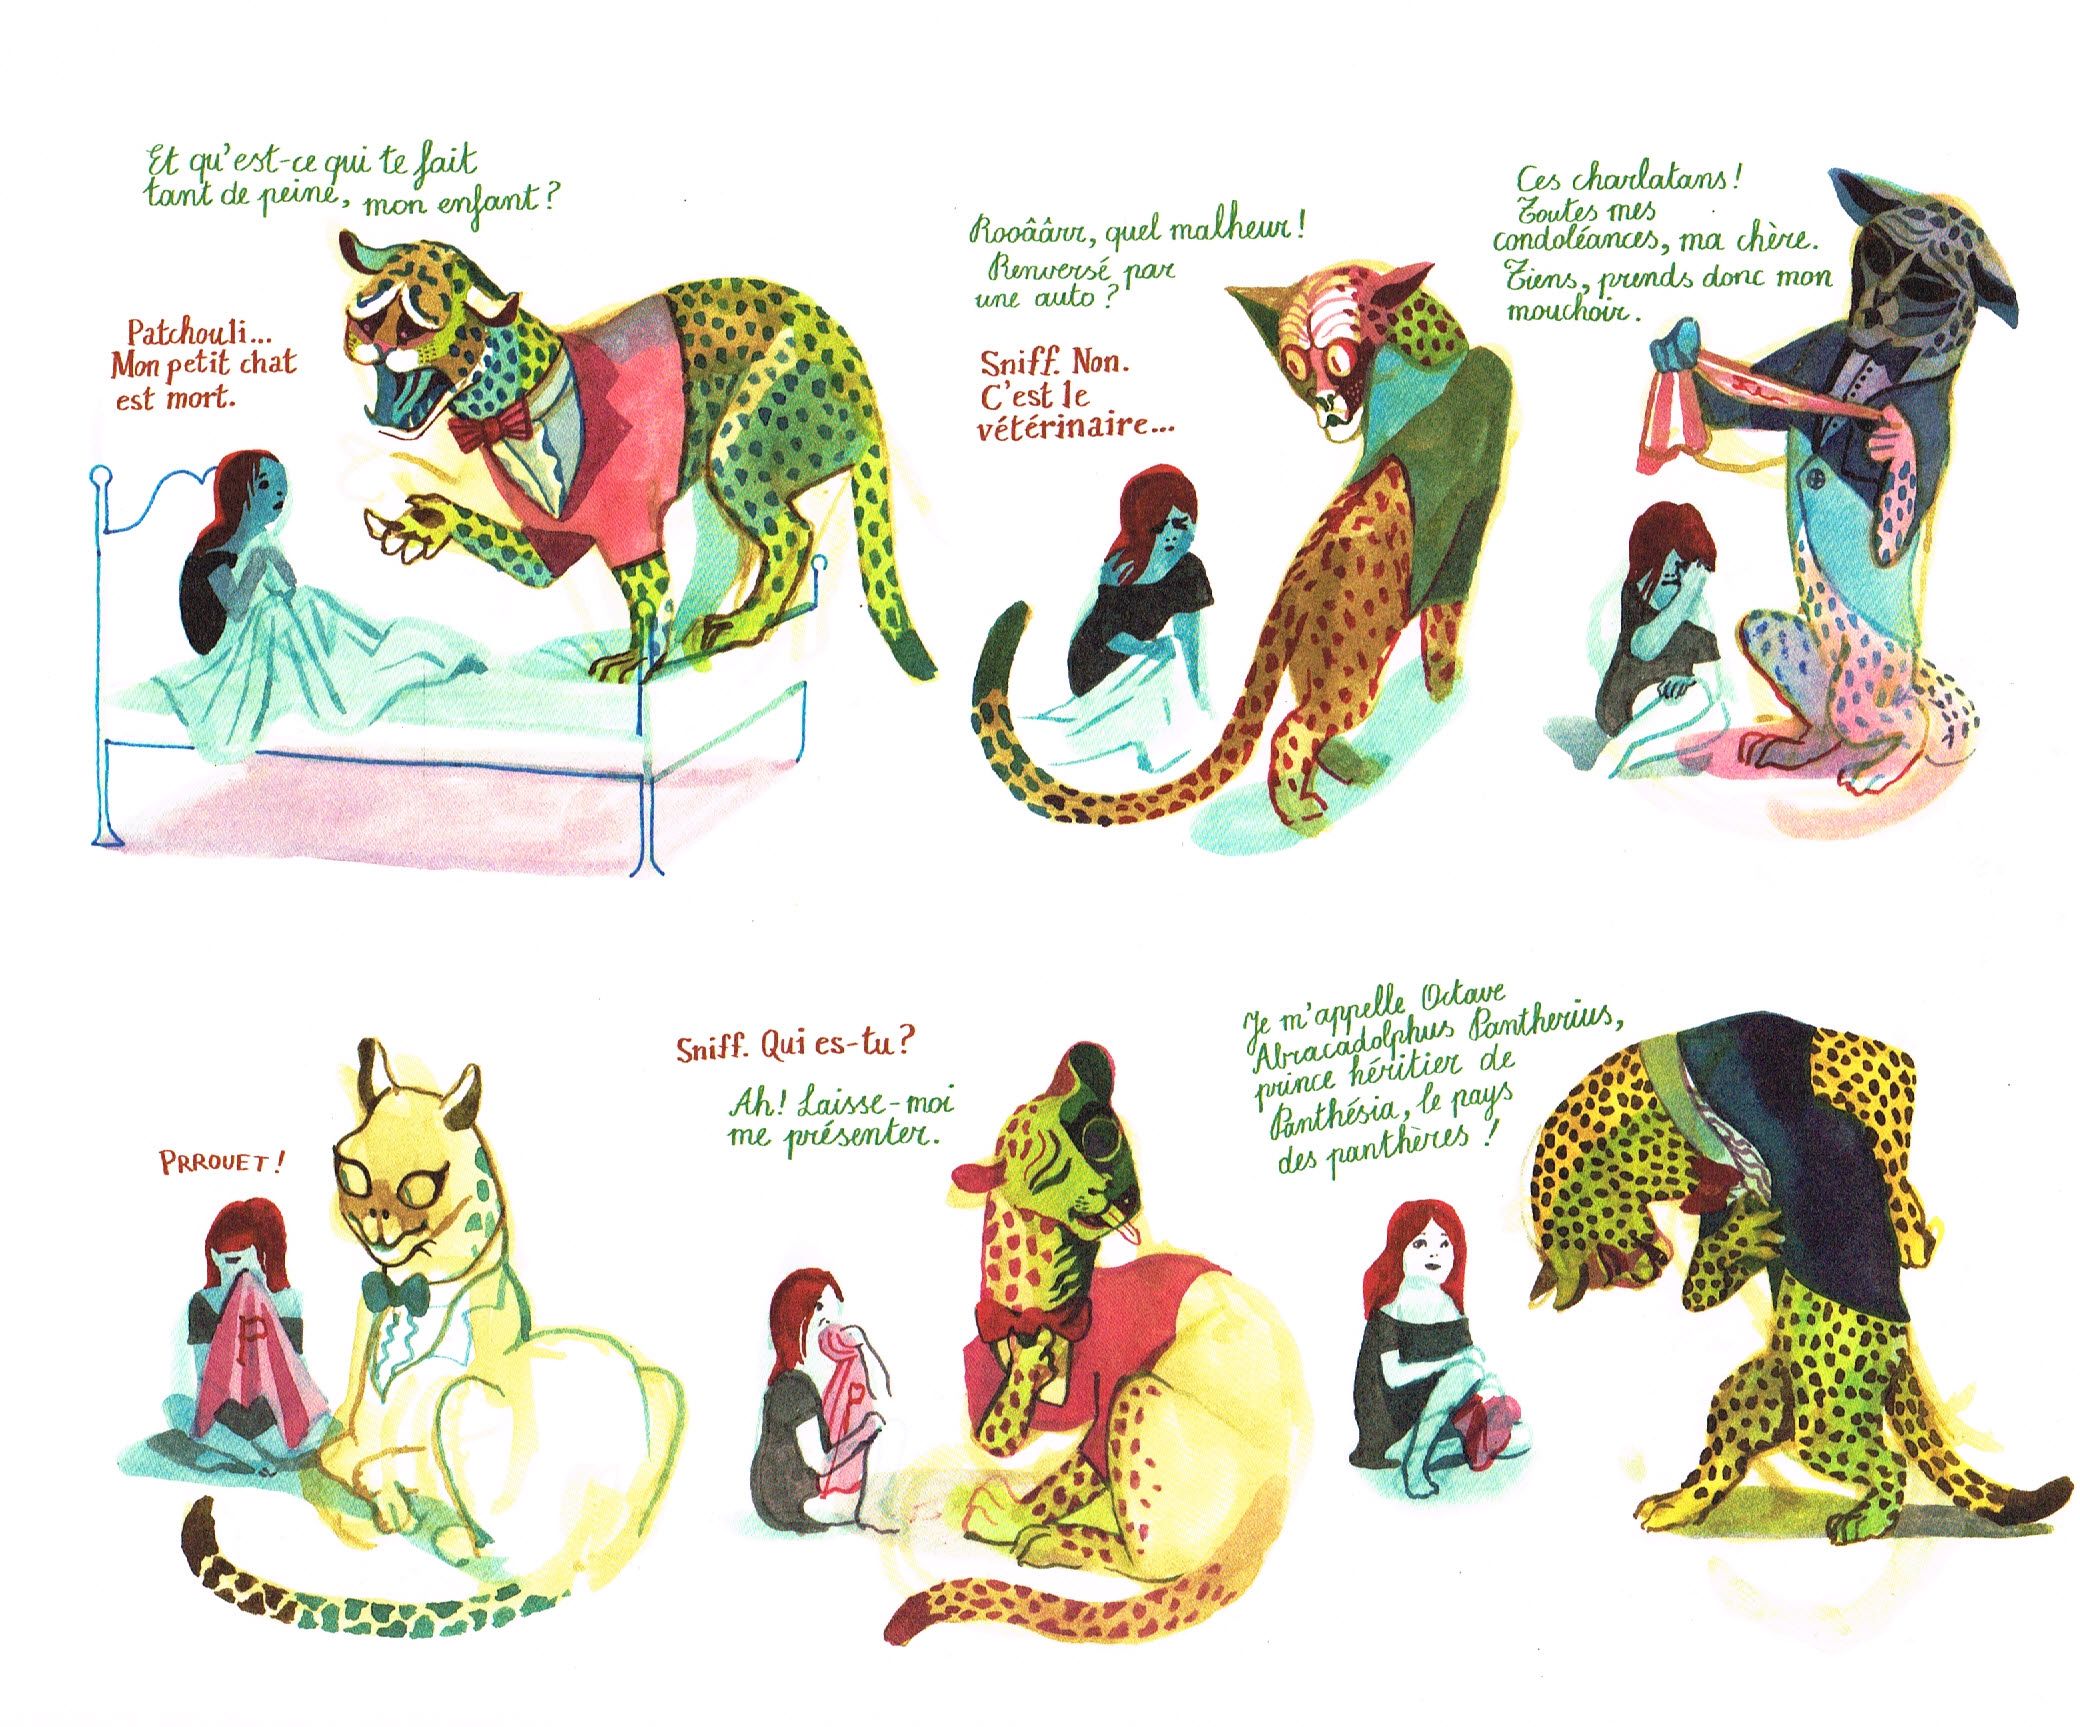 Et qu'est-ce qui te fait
tant de peine, mon enfant?
Patchouli...
Mon petit chat
est mort.
Rooâârr, quel malheur!
Renversé par
une auto?
Sniff. Non.
C'est le
vétérinaire...
Ces charlatans!
Toutes mes
condoléances, ma chère.
Tiens, prends donc mon
mouchoir.
PRROUET!
P
Sniff. Qui es-tu?
Ah! Laisse-moi
me présenter.
P
Je m'appelle Octave
Abracadolphus Pantherius,
prince héritier de
Panthésia, le pays
des panthères!